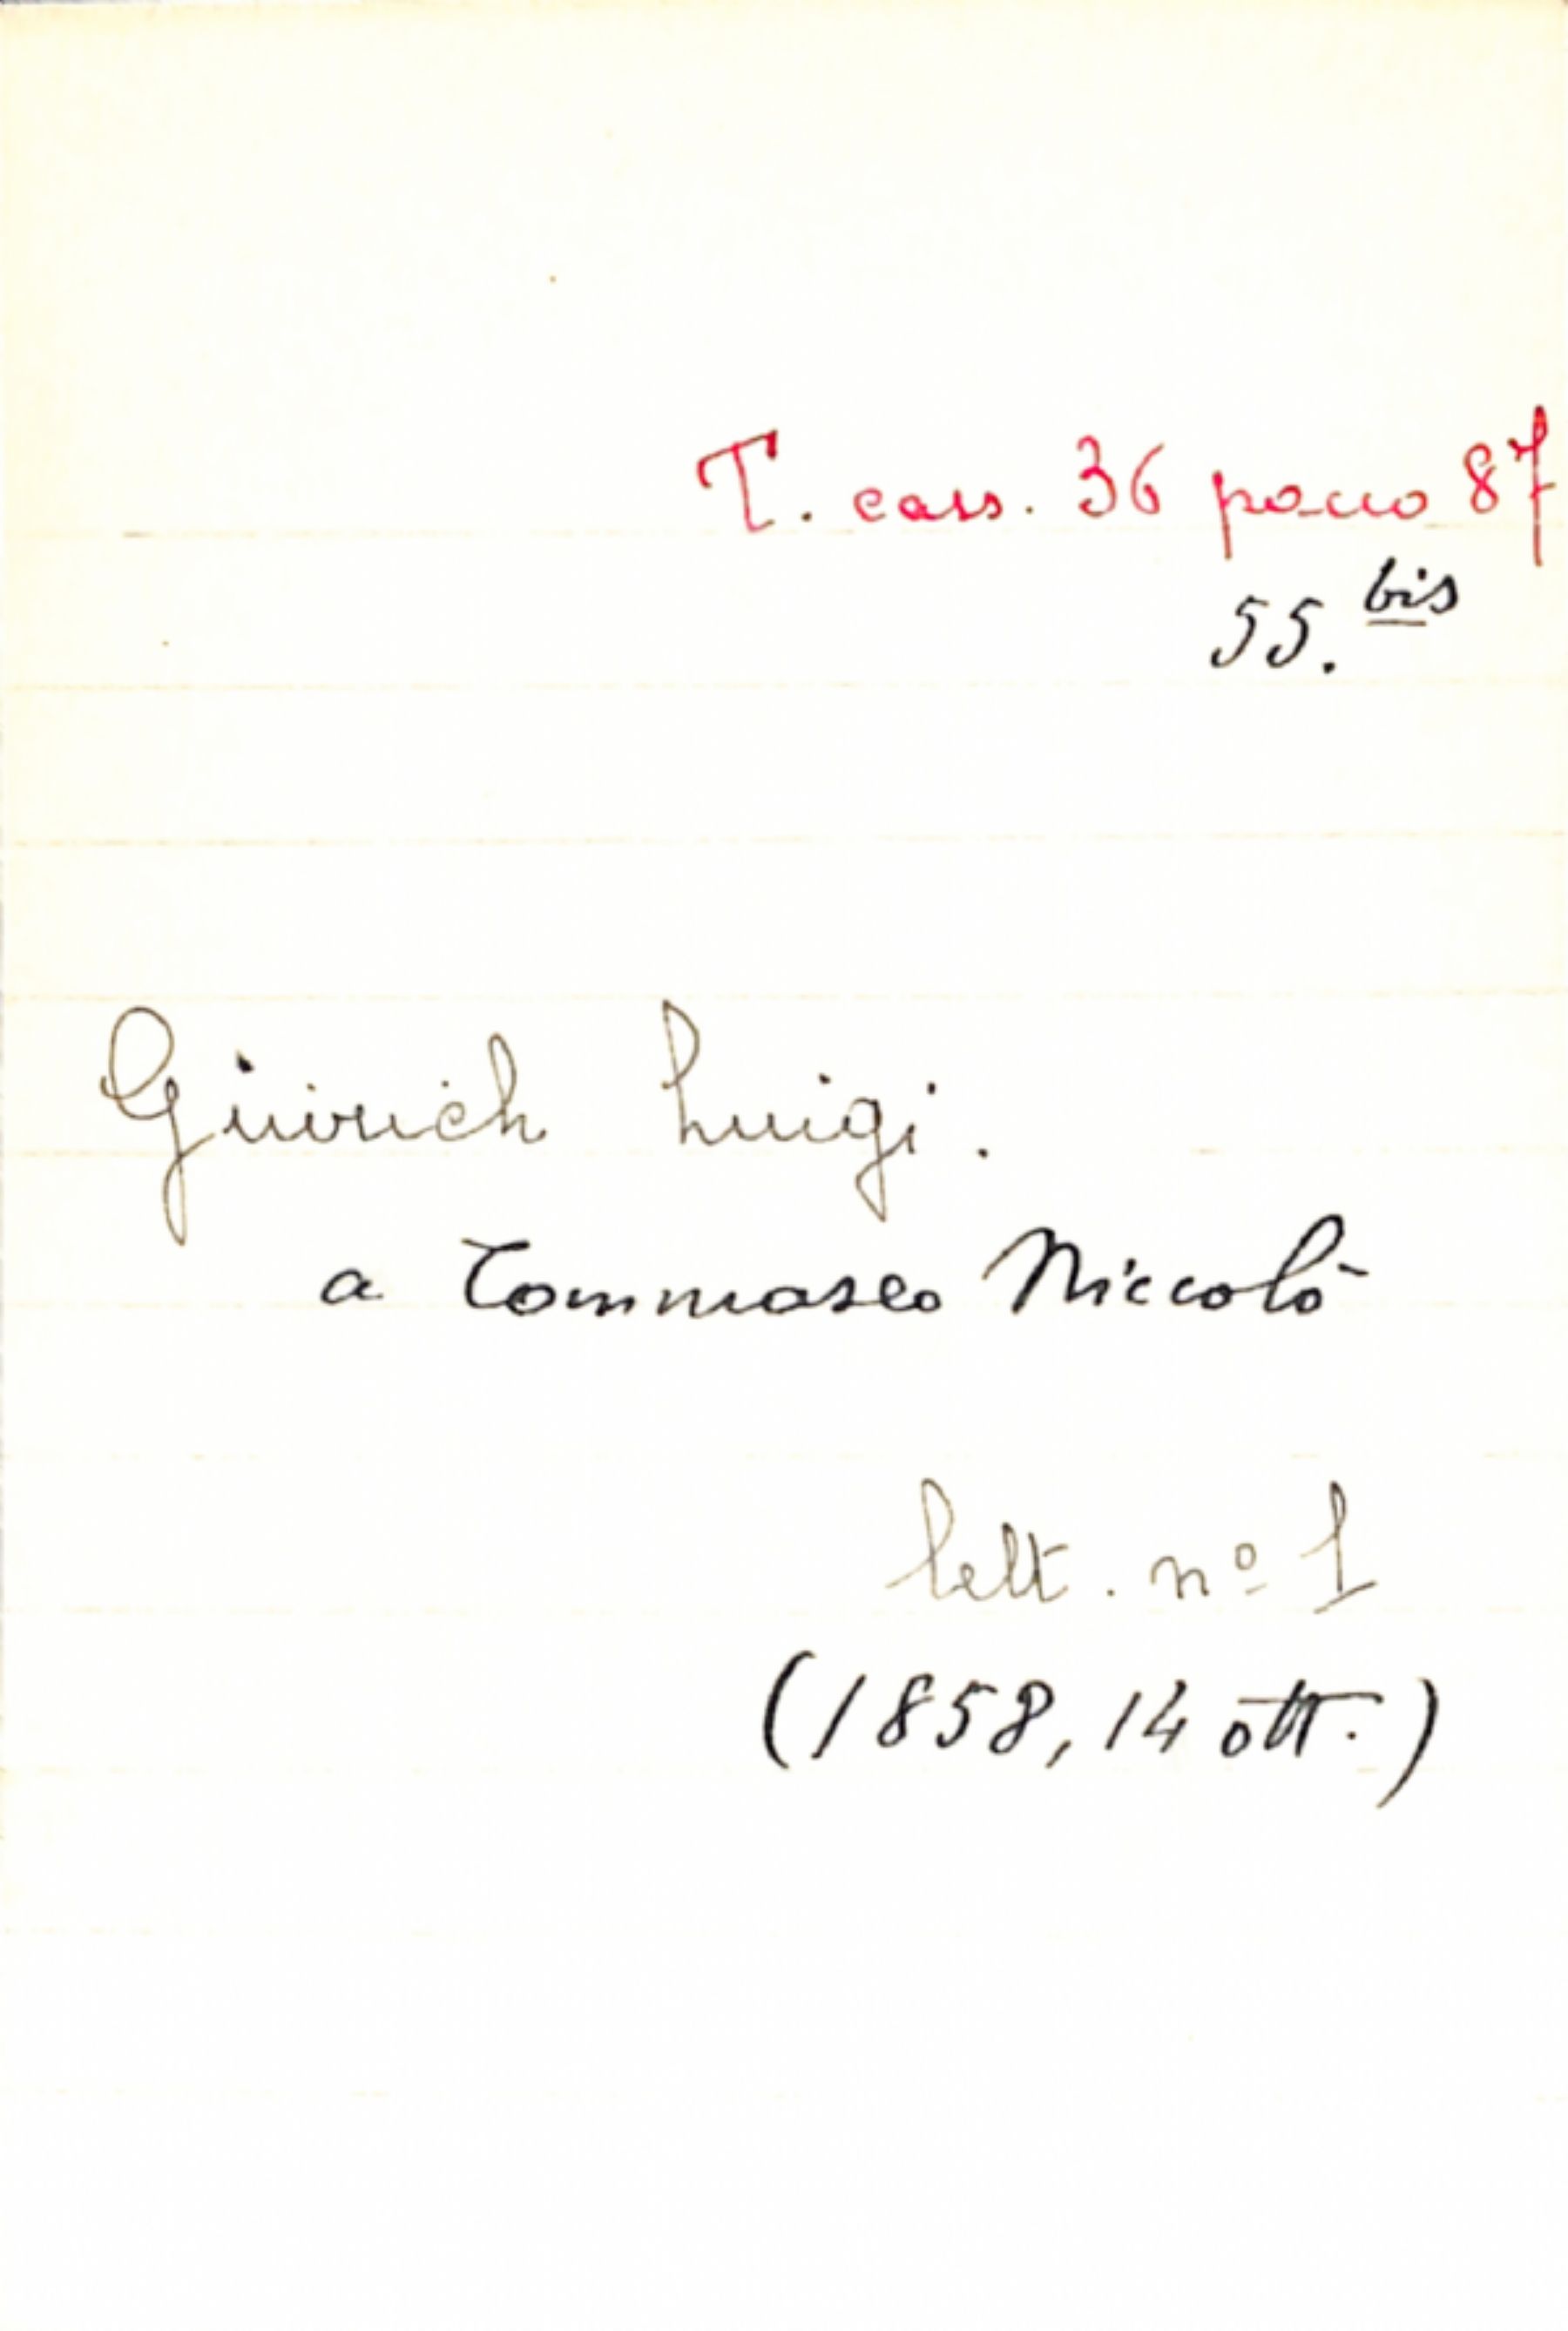 T. cass. 36 pacco 87
55. bis
Luigi.
a Tommaseo Niccolò
lett. nº 1
(1858, 14 ott.)